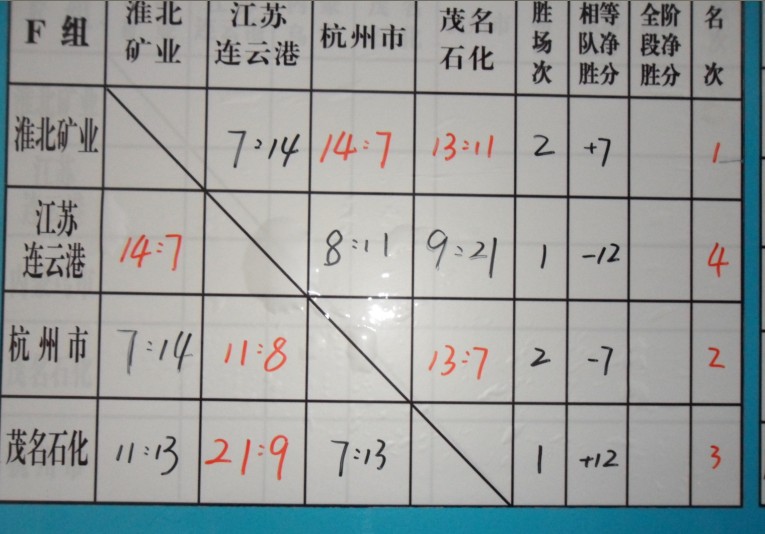 F 组 淮北矿业 江苏连云港 杭州市 茂名石化 胜场次 相等队净胜分 全阶段净胜分 名次
淮北矿业 7:14 14:7 13:11 2 +7 1
江苏连云港 14:7 8:11 9:21 1 -12 4
杭州市 7:14 11:8 13:7 2 -7 2
茂名石化 11:13 21:9 7:13 1 +12 3